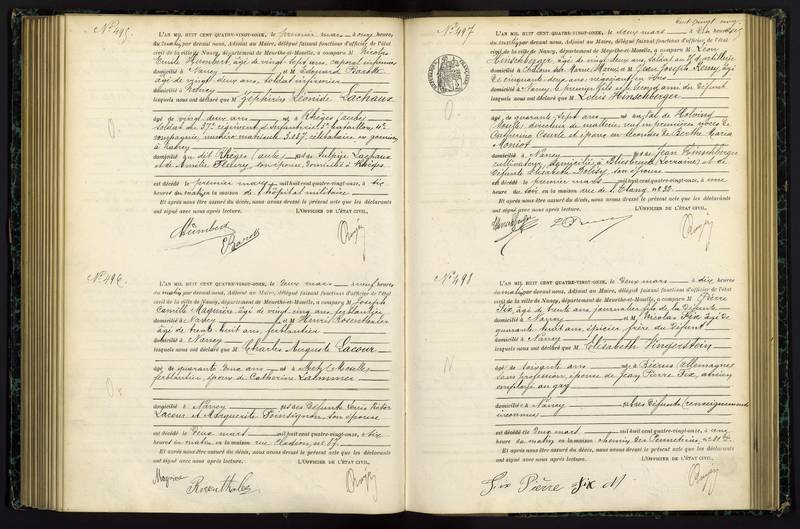 N° 495.
L'AN MIL HUIT CENT QUATRE-VINGT-ONZE, le premier mars à onze heures
du matin par devant nous, Adjoint au Maire, délégué faisant fonctions d'officier de l'état
civil de la ville de Nancy, département de Meurthe-et-Moselle, a comparu M Nicolas
Emile Humbert âgé de vingt sept ans, caporal infirmier
domicilié à Nancy et M Edouard
âgé de vingt deux ans, soldat infirmier
domicilié à Nancy
lesquels nous ont déclaré que M Zéphirin Léonide Lachaux
âgé de vingt deux ans né à Rhèges (Aube)
soldat du 37e régiment d'Infanterie, bataillon, 4e
compagnie, matricule célibataire en garnison
à Nancy
domicilié au dit Rhèges (Aube) fils de Sulpice Lachaux
et de Amélie Fleury, son épouse, domiciliés à Rhèges
est décédé le premier mars mil huit cent quatre-vingt-onze, à six
heures du matin en la maison de l'hôpital militaire
Et après nous être assuré du décès, nous avons dressé le présent acte que les déclarants
ont signé avec nous après lecture. L'OFFICIER DE L'ÉTAT CIVIL,
Humbert
N° 496.
L'AN MIL HUIT CENT QUATRE-VINGT-ONZE, le deux mars neuf heures
du matin par devant nous, Adjoint au Maire, délégué faisant fonctions d'officier de l'état
civil de la ville de Nancy, département de Meurthe-et-Moselle, a comparu M Joseph
Camille Magnière âgé de vingt cinq ans, ferblantier
domicilié à Nancy et M Henri Rosenthaler
âgé de trente huit ans, ferblantier
domicilié à Nancy
lesquels nous ont déclaré que M Charles Auguste Lacour
âgé de quarante deux ans né à Metz (Moselle)
ferblantier, époux de Catherine
domicilié à Nancy fils des défunts Louis Victor
Lacour et Marguerite Poinsignon son épouse
est décédé le deux mars mil huit cent quatre-vingt-onze, à six
heures du matin en la maison rue Clodion n° 67
Et après nous être assuré du décès, nous avons dressé le présent acte que les déclarants
ont signé avec nous après lecture. L'OFFICIER DE L'ÉTAT CIVIL,
Magnière
Rosenthaler
N° 497
L'AN MIL HUIT CENT QUATRE-VINGT-ONZE, le deux mars à dix heures
du matin par devant nous, Adjoint au Maire, délégué faisant fonctions d'officier de l'état
civil de la ville de Nancy, département de Meurthe-et-Moselle, a comparu M Léon
Hinschberger, âgé de vingt deux ans, soldat d'artillerie
domicilié à Châlons sur Marne (Marne) et M Jean Joseph Remy âgé
de cinquante deux ans, négociant en vins
domicilié à Nancy le premier fils et le second ami du défunt
lesquels nous ont déclaré que M Louis Hinschberger
âgé de quarante sept ans né au Val de
Moselle, directeur de malterie, veuf en premières noces de
Catherine Courte et époux en secondes de Berthe Maria
Monist
domicilié à Nancy fils de Jean Hinschberger
cultivateur, domicilié à (Lorraine) et de
défunte Elisabeth son épouse
est décédé le premier mars mil huit cent quatre-vingt-onze, à une
heure du soir en la maison rue de l'Etang n° 32.
Et après nous être assuré du décès, nous avons dressé le présent acte que les déclarants
ont signé avec nous après lecture. L'OFFICIER DE L'ÉTAT CIVIL,
N° 498
L'AN MIL HUIT CENT QUATRE-VINGT-ONZE, le deux mars à dix heures
du matin par devant nous, Adjoint au Maire, délégué faisant fonctions d'officier de l'état
civil de la ville de Nancy, département de Meurthe-et-Moselle, a comparu M Pierre
Fix, âgé de trente ans, journalier, fils de la défunte
domicilié à Nancy et M Nicolas Fix âgé de
quarante huit ans, épicier, frère du défunt
domicilié à Nancy
lesquels nous ont déclaré que M Elisabeth Vingerstein
âgée de soixante ans née à (Allemagne)
sans profession, épouse de Jean Pierre Fix, ancien
employé au gaz
domiciliée à Nancy fille des défunts (renseignements
inconnus)
est décédée le deux mars mil huit cent quatre-vingt-onze, à cinq
heures du matin en la maison chemin
Et après nous être assuré du décès, nous avons dressé le présent acte que les déclarants
ont signé avec nous après lecture. L'OFFICIER DE L'ÉTAT CIVIL,
Fix Pierre Fix N